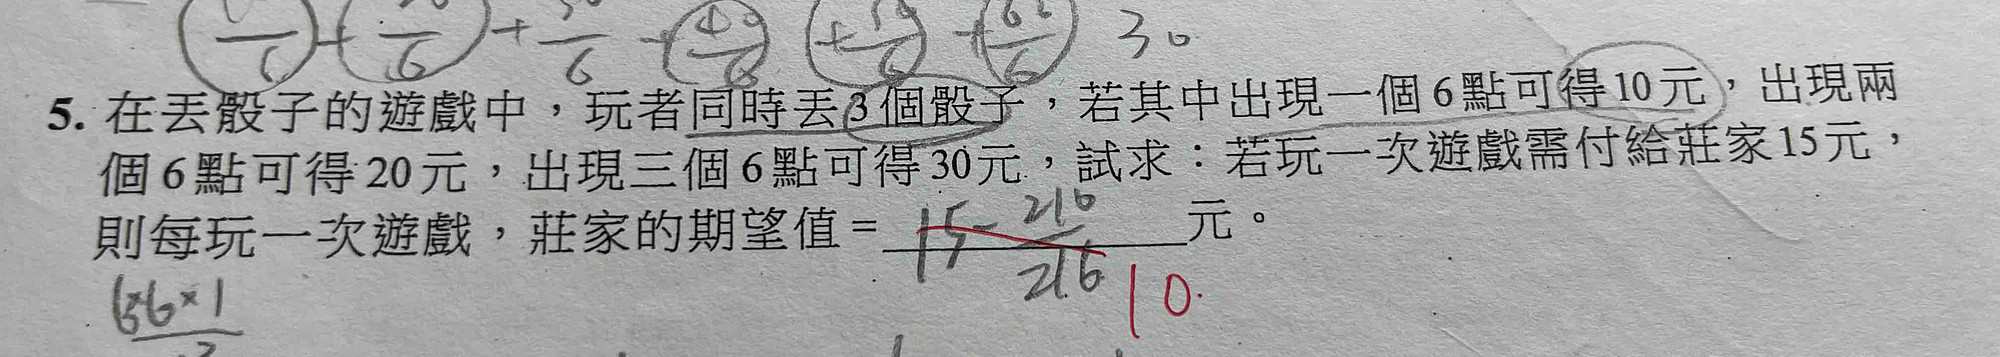 30
5. 在丟骰子的遊戲中，玩者同時丟3個骰子，若其中出現一個6點可得10元，出現兩
個6點可得20元，出現三個6點可得30元，試求：若玩一次遊戲需付給莊家15元，
則每玩一次遊戲，莊家的期望值= 15-216/216 元。
10